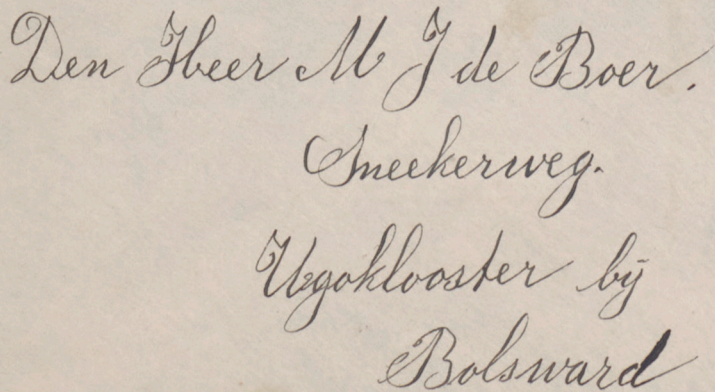 Den Heer M J de Boer.
Sneekerweg.
Ugoklooster bij
Bolsward